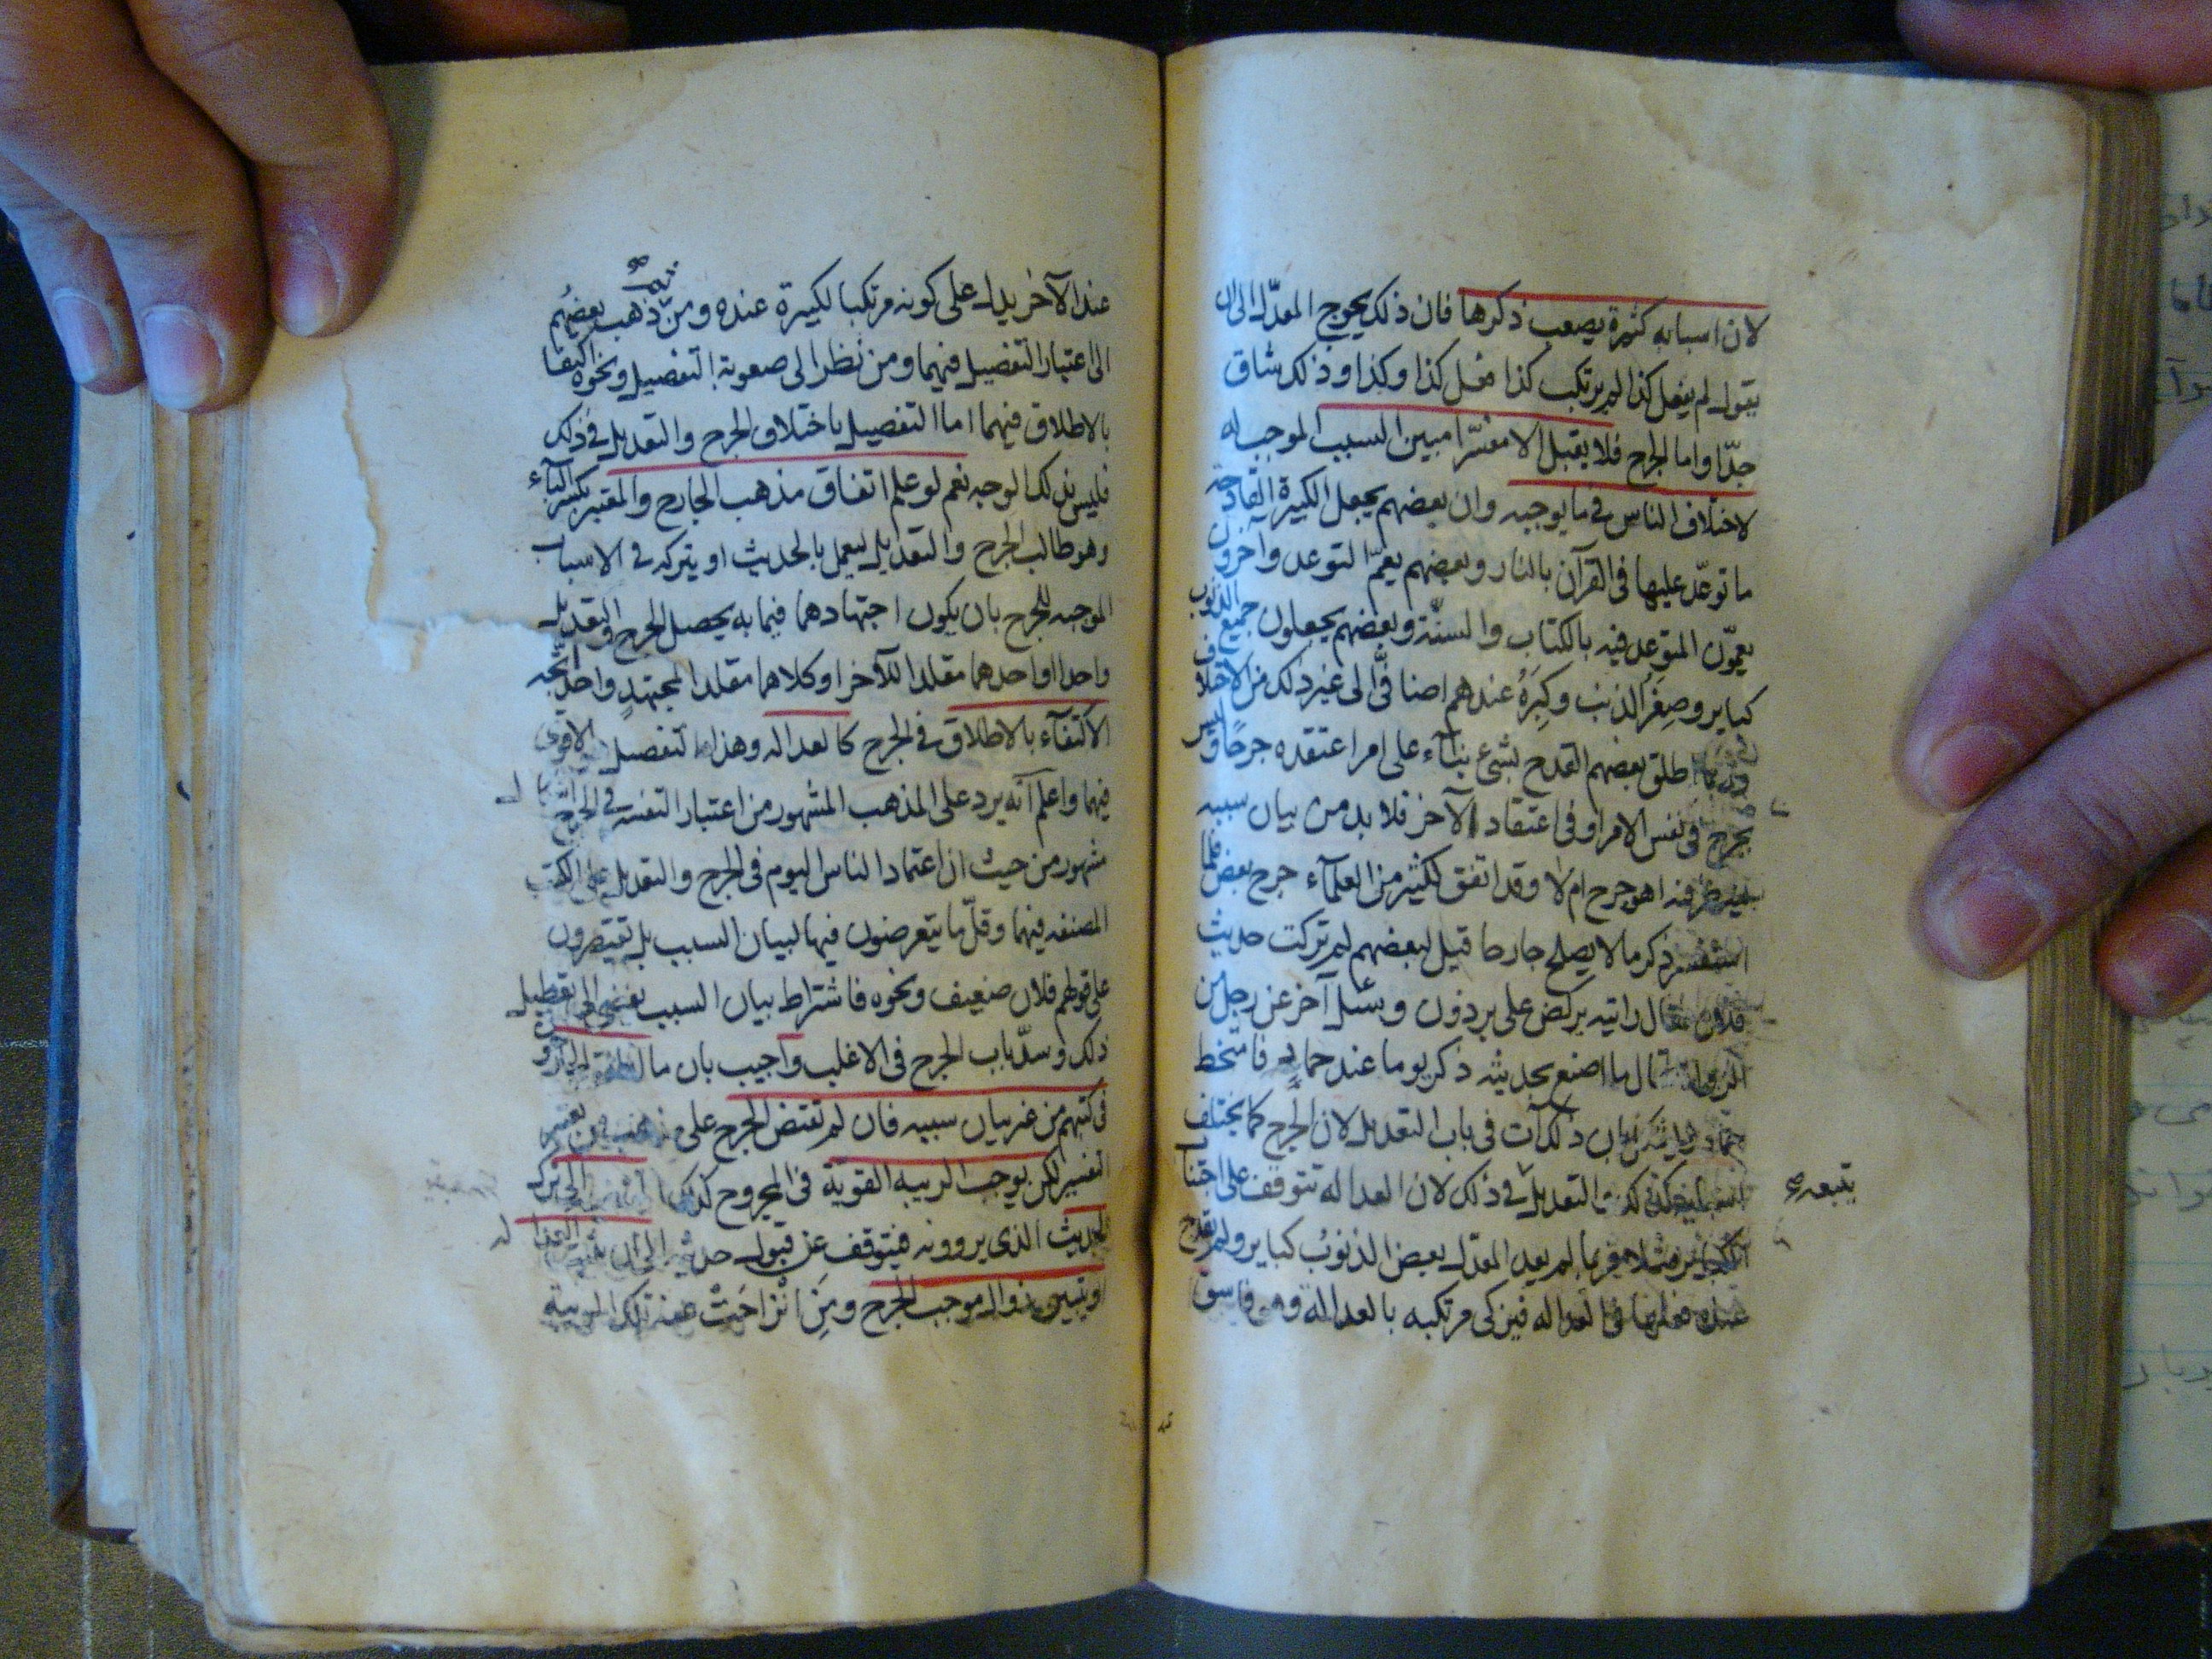 لان اسبابه كثيرة يصعب ذكرها فان ذلك يحوج المعدّل الى ان
يقول لم يفعل كذا لم يرتكب كذا فعل كذا وكذا وذلك شاق
جدّا واما الجرح فلا يقبل الا مفسّرا مبين السبب الموجب له
لاختلاف الناس في ما يوجبه وان بعضهم يجعل الكبيرة القادحة
ما توعّد عليها في القرآن بالنار وبعضهم يعمّ التوعد وآخرون
يعمّون المتوعد فيه بالكتاب والسنّة وبعضهم يجعلون جميع الذنوب
كباير وصِغَرُ الذنب وكِبَرُهُ عندهم اضافىّ الى غير ذلك من الاختلاف
فربما اطلق بعضهم القدح بشئ بنآء على امر اعتقده جرحًا وليس
بجرح في نفس الامر او في اعتقاد الآخر فلا بد من بيان سببه
لينظر فيه اهو جرح ام لا وقد اتفق لكثير من العلمآء جرح بعض فلما
استفسر ذكر ما لا يصلح جارحا قيل لبعضهم لم تركت حديث
فلان فقال رايته يركض على برذون وسئل آخر عن رجل من
الرواة فقال ما اصنع بحديثه ذكر يوما عند حماد فامتخط
حماد ذلك آت في باب التعديل لان الجرح كما يختلف
كذلك التعديل يتبعه في ذلك لان العدالة تتوقف على اجتناب
الكباير مثلا فربما لم يعد المعدّل بعض الذنوب كباير ولم يقدح
عنده فعلها في العدالة فيزكى مرتكبه بالعدالة وهو فاسق
عند الآخر يدل على كونه مرتكبا لكبيرة عنده ومن ثمّه ذهب بعضهم
الى اعتبار التفصيل فيهما ومن نظر الى صعوبة التفصيل ونحوه اكتفا
بالاطلاق فيهما اما التفصيل باختلاف الجرح والتعديل في ذلك
فليس بذلك الوجه نعم لو علم اتفاق مذهب الجارح والمعتبر بكسر البآء
وهو طالب الجرح والتعديل ليعمل بالحديث او يتركه في الاسباب
الموجبه للجرح بان يكون اجتهادهما فيما به يحصل الجرح والتعديل
واحدا او احدهما مقلدا للآخر او كلاهما مقلدا لمجتهدٍ واحد اتّجه
الاكتفآء بالاطلاق في الجرح كالعداله وهذا التفصيل الاقوى
فيهما واعلم انّه يرد على المذهب المشهور من اعتبار التفسير في الجرح
مشهور من حيث ان اعتماد الناس اليوم في الجرح والتعديل على الكتب
المصنفه فيهما وقلّ ما يتعرضون فيها لبيان السبب بل يقتصرون
على قولهم فلان ضعيف ونحوه فاشتراط بيان السبب يفضي الى تعطيل
ذلك وسدّ باب الجرح في الاغلب واجيب بان ما
في كتبهم من غير بيان سببه فان لم تقتض الجرح على
التفسير لكن يوجب الريبه القويّة في المجروح كذلك الى ترك
الحديث الذي يروونه فيتوقف عن قبول حديثه الى ان
او تبين زوال موجب الجرح ومَنِ انْزاحَتْ عنه تلك الريبة